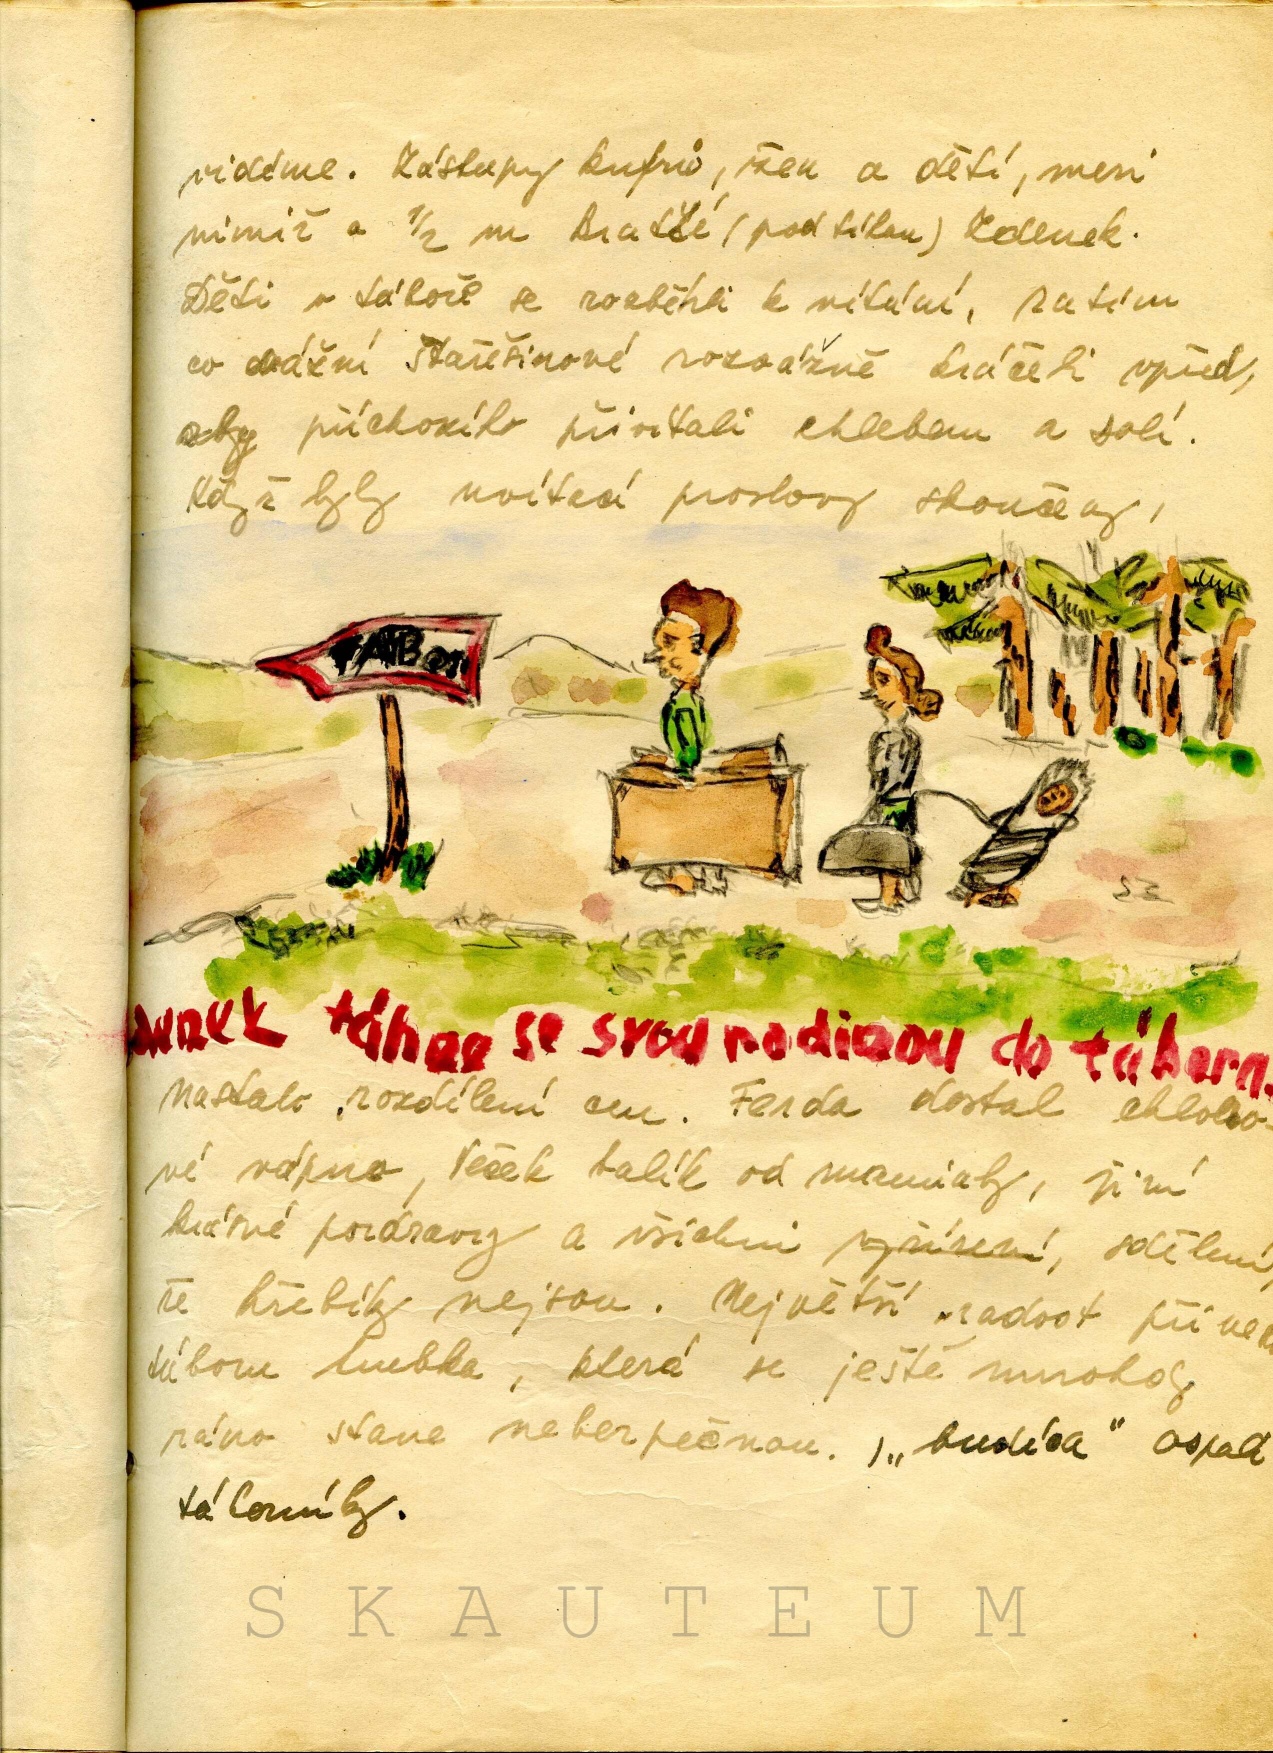 vidíme. Zástupy kufrů, žen a dětí, mezi
nimiž a 1/2 m Bratší (pod tíhou) Zdenek.
Děti v táboře se rozběhli k vítání, zatím
co vážní Stařešinové rozvážně kráčeli vpřed,
aby příchozího přivítali chlebem a solí.
Když byly uvítací proslovy skončeny,
TÁBOR
táhne se svou rodinou do tábora.
Nastalo rozdílení cen. Ferda dostal chloro-
vé vápno, Vašek balík od maminky, jiní
krásné pozdravy a všichni vyřízení, sdělení,
že hřebíky nejsou. Největší radost
táboru trubka, která se ještě mnohdy
ráno stane nebezpečnou. „budíca" ospalé
táborníky.
SKAUTEUM